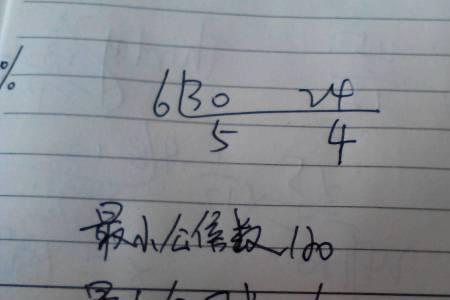 %
6 30 24
5 4
最小公倍数120